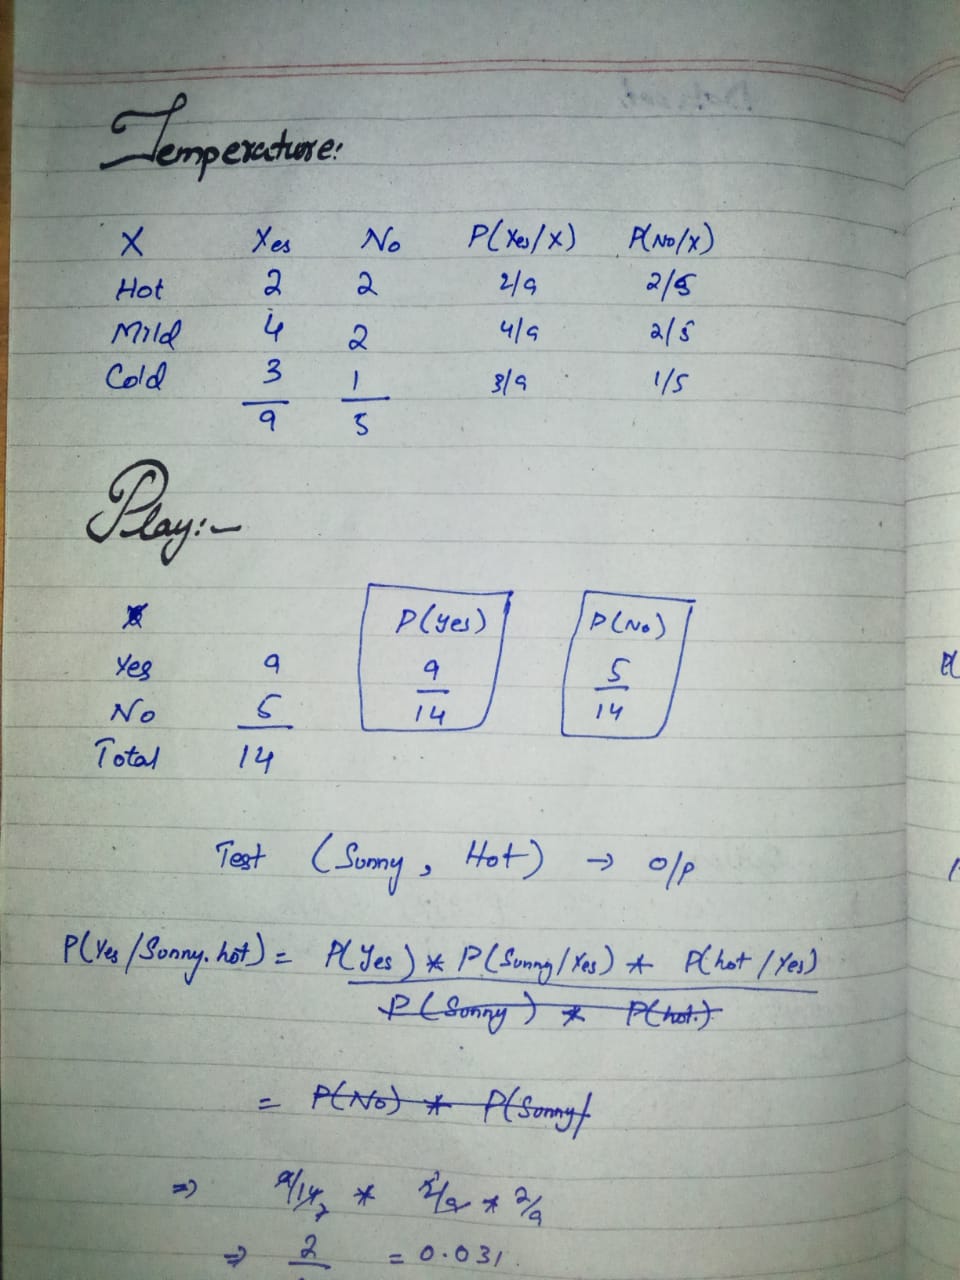 Temperature:
X Yes No P(Yes/X) P(No/X)
Hot 2 2 2/9 2/5
Mild 4 2 4/9 2/5
Cold 3 1 3/9 1/5
9 5
Play:-
P(Yes) P(No)
Yes 9 9/14 5/14
No 5
Total 14
Test (Sunny, Hot) → O/P
P(Yes/Sunny.hot) = P(Yes) * P(Sunny/Yes) * P(hot/Yes)
P(Sunny) * P(hot.)
= P(No) * P(Sunny/
⇒ 9/14 * 2/9 * 2/9
⇒ 2 = 0.031